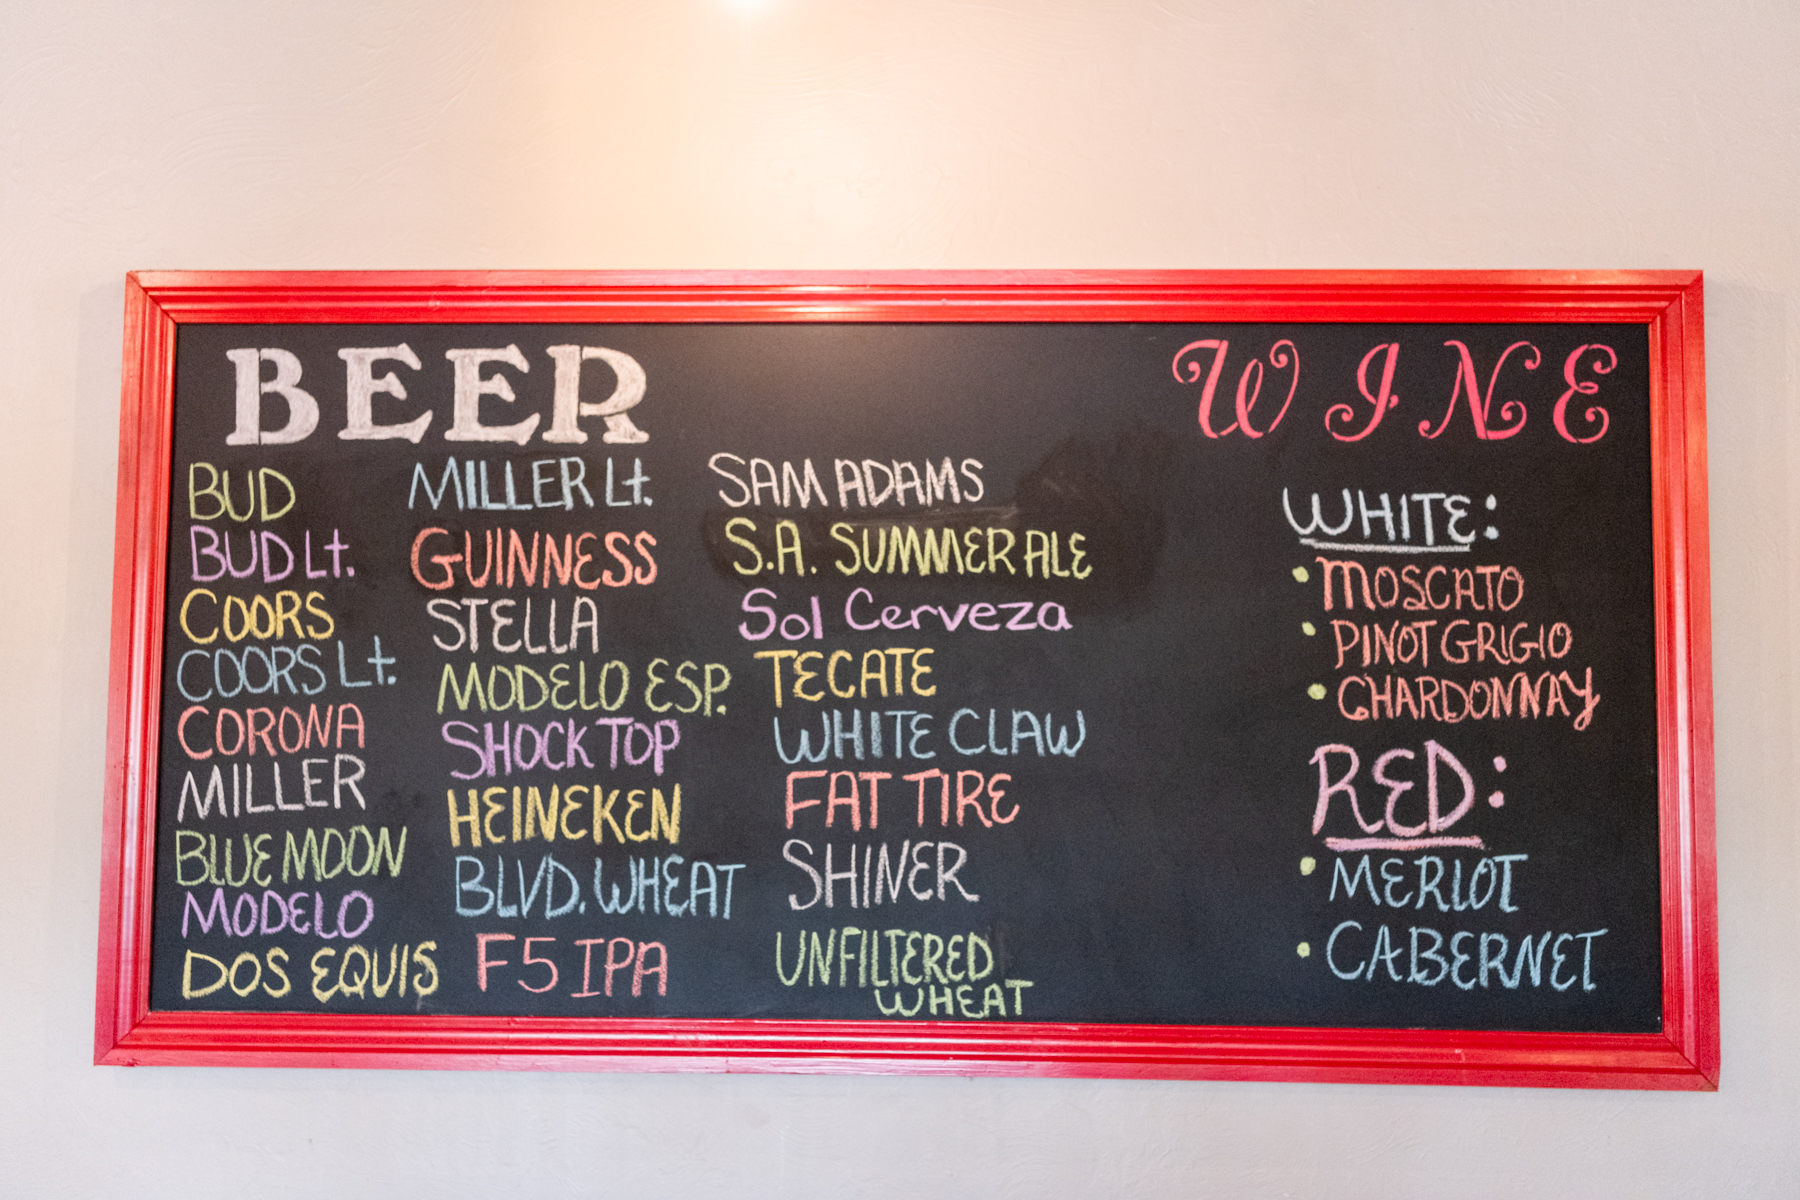 BEER
BUD
BUD Lt.
COORS
COORS Lt.
CORONA
MILLER
BLUE MOON
MODELO
DOS EQUIS
MILLER Lt.
GUINNESS
STELLA
MODELO ESP.
SHOCK TOP
HEINEKEN
BLVD. WHEAT
F5 IPA
SAM ADAMS
S.A. SUMMER ALE
Sol Cerveza
TECATE
WHITE CLAW
FAT TIRE
SHINER
UNFILTERED
WHEAT
WINE
WHITE:
• MOSCATO
• PINOT GRIGIO
• CHARDONNAY
RED:
• MERLOT
• CABERNET